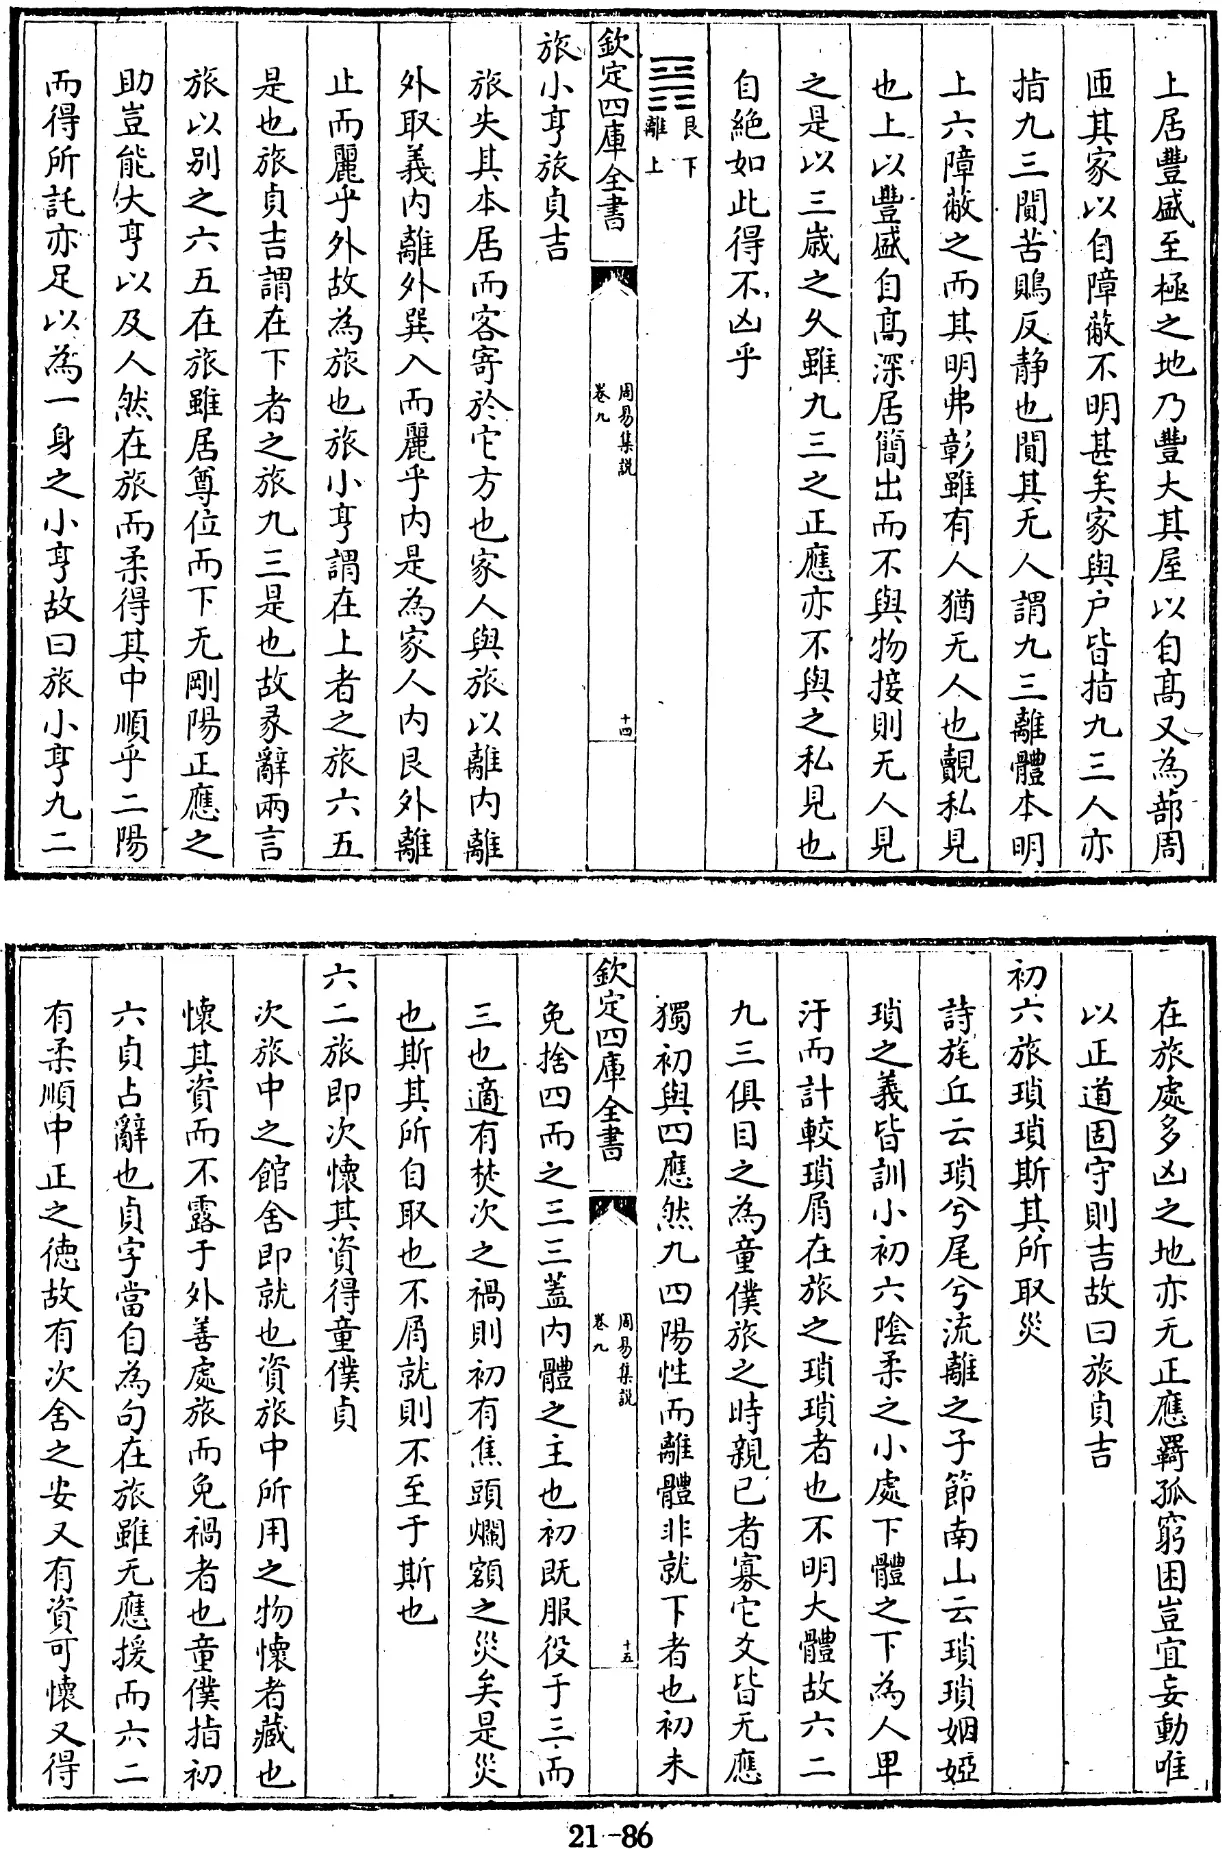 上居豐盛至極之地乃豐大其屋以自髙又為蔀周
匝其家以自障蔽不明甚矣家與户皆指九三人亦
指九三闃苦鵙反静也闃其无人謂九三離體本明
上六障蔽之而其明弗彰雖有人猶无人也覿私見
也上以豐盛自髙深居簡出而不與物接則无人見
之是以三歳之久雖九三之正應亦不與之私見也
自絶如此得不凶乎
䷷艮下
離上
欽定四庫全書
周易集説
卷九
十四
旅小亨旅貞吉
旅失其本居而客寄於它方也家人與旅以離内離
外取義内離外巽入而麗乎内是為家人内艮外離
止而麗乎外故為旅也旅小亨謂在上者之旅六五
是也旅貞吉謂在下者之旅九三是也故彖辭兩言
旅以别之六五在旅雖居尊位而下无剛陽正應之
助豈能大亨以及人然在旅而柔得其中順乎二陽
而得所託亦足以為一身之小亨故曰旅小亨九二
在旅處多凶之地亦无正應羇孤窮困豈宜妄動唯
以正道固守則吉故曰旅貞吉
初六旅瑣瑣斯其所取災
詩旄丘云瑣兮尾兮流離之子節南山云瑣瑣姻婭
瑣之義皆訓小初六陰柔之小處下體之下為人卑
汙而計較瑣屑在旅之瑣瑣者也不明大體故六二
九三俱目之為童僕旅之時親已者寡它爻皆无應
獨初與四應然九四陽性而離體非就下者也初未
欽定四庫全書
周易集説
卷九
十五
免捨四而之三三蓋内體之主也初既服役于三而
三也適有焚次之禍則初有焦頭爛額之災矣是災
也斯其所自取也不屑就則不至于斯也
六二旅即次懷其資得童僕貞
次旅中之館舍即就也資旅中所用之物懷者藏也
懷其資而不露于外善處旅而免禍者也童僕指初
六貞占辭也貞字當自為句在旅雖无應援而六二
有柔順中正之徳故有次舍之安又有資可懷又得
21-86